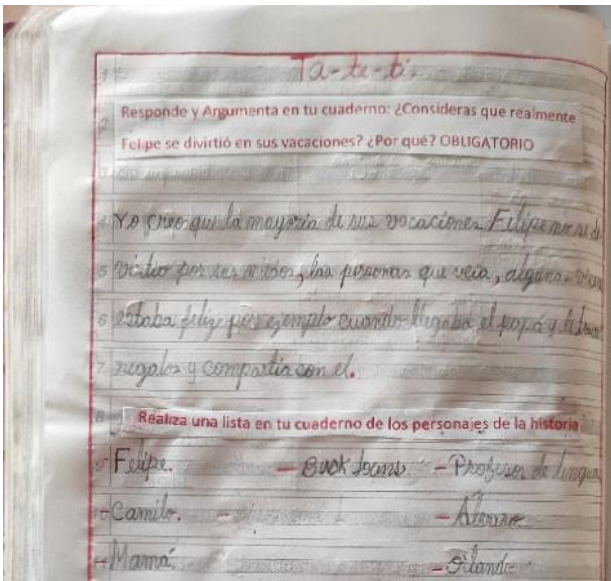 Ta-te-ti.
Responde y Argumenta en tu cuaderno: ¿Consideras que realmente
Felipe se divirtió en sus vacaciones? ¿Por qué? OBLIGATORIO
Yo creo que la mayoria de sus vacaciones Felipe no se di
virtio por sus miedos, las personas que veia, algunas veces
estaba feliz por ejemplo cuando llegaba el papá y le
regalos y compartia con el.
Realiza una lista en tu cuaderno de los personajes de la historia
Felipe. - Buck - Profesor de lengua
- Camilo. -
- Mamá. - Orlando